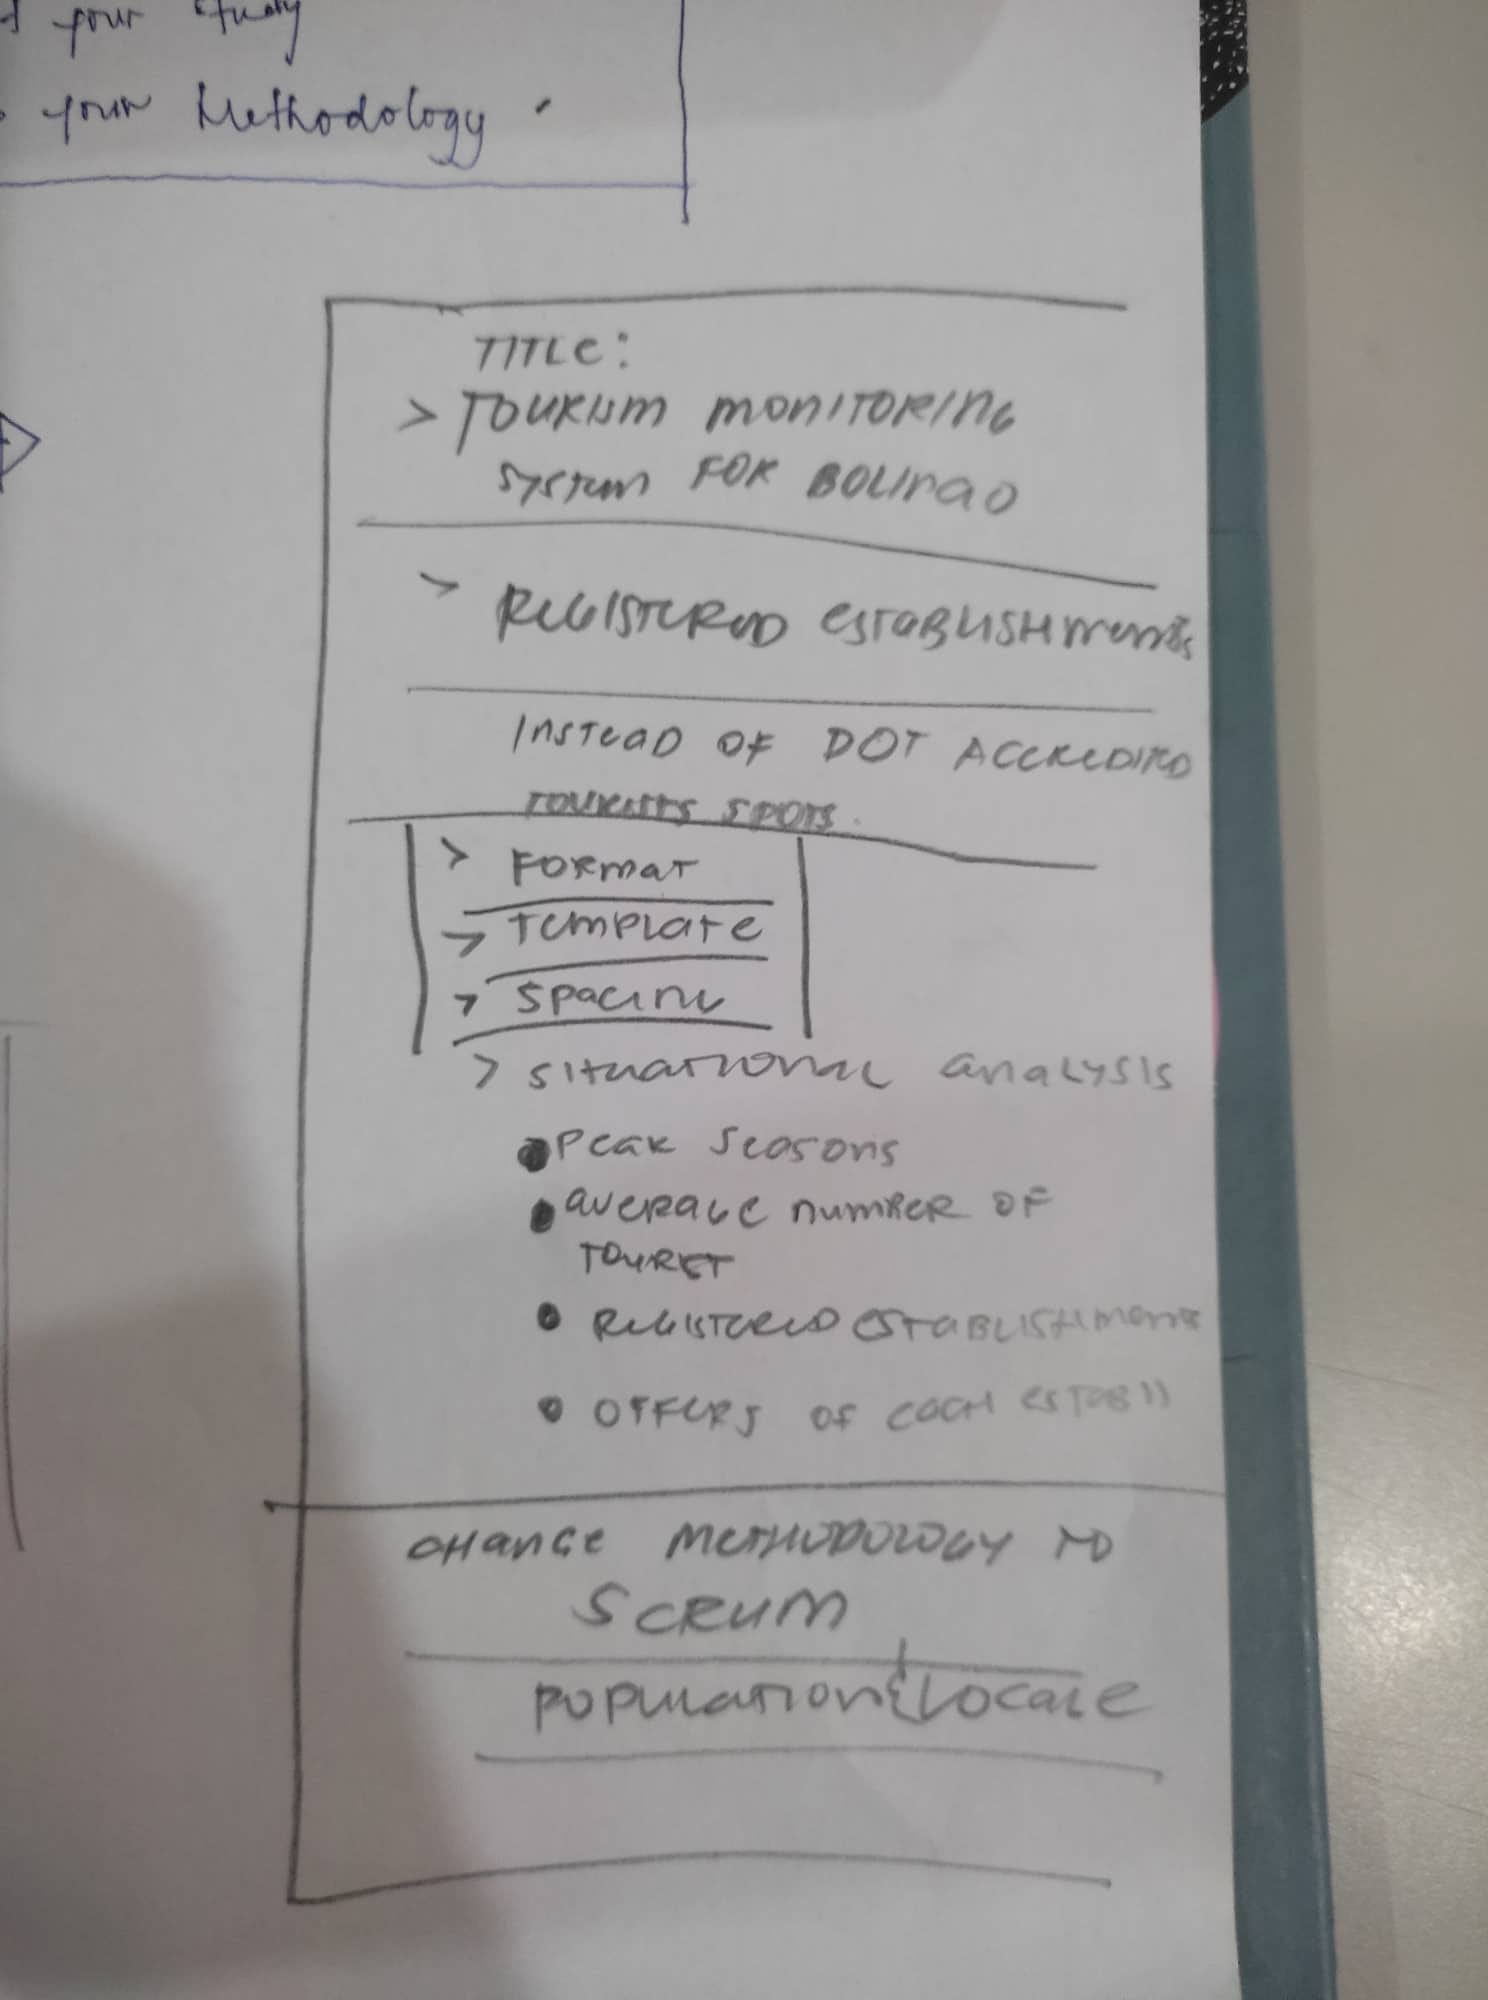 your study
your Methodology .
TITLE:
> TOURISM MONITORING
SYSTEM FOR BOLINAO
> REGISTERED ESTABLISHMENTS
INSTEAD OF DOT ACCREDITED
TOURISTS SPOTS.
> FORMAT
> TEMPLATE
> SPACING
> SITUATIONAL ANALYSIS
• PEAK SEASONS
• AVERAGE NUMBER OF
TOURIST
• REGISTERED ESTABLISHMENTS
• OFFERS OF EACH ESTABLI
CHANGE METHODOLOGY TO
SCRUM
POPULATION & LOCALE